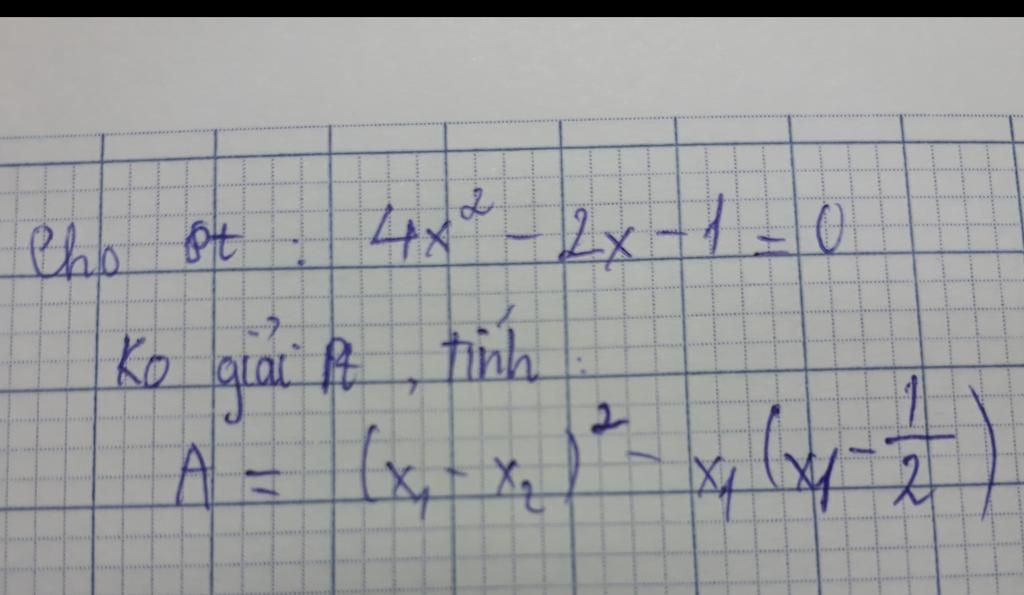 Cho pt : 4x² - 2x - 1 = 0
Ko giải Pt , tính :
A = (x₁ - x₂)² - x₁(x₁ - 1/2)